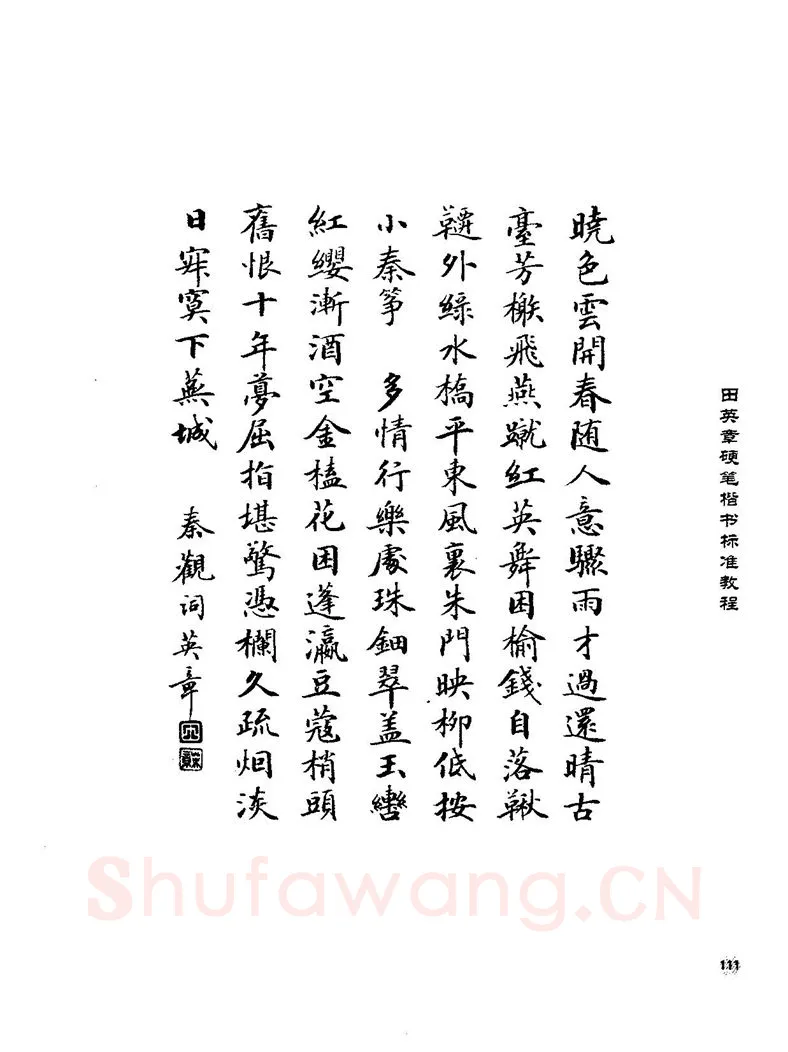 田英章硬笔楷书标准教程
曉色雲開春随人意驟雨才過還晴古
臺芳榭飛燕蹴紅英舞困榆錢自落鞦
韆外綠水橋平東風裏朱門映柳低按
小秦筝 多情行樂處珠鈿翠盖玉轡
紅纓漸酒空金榼花困蓬瀛豆蔻梢頭
舊恨十年夢屈指堪驚憑欄久疏烟淡
日寂寞下蕪城 秦觀詞英章
Shufawang.CN
111